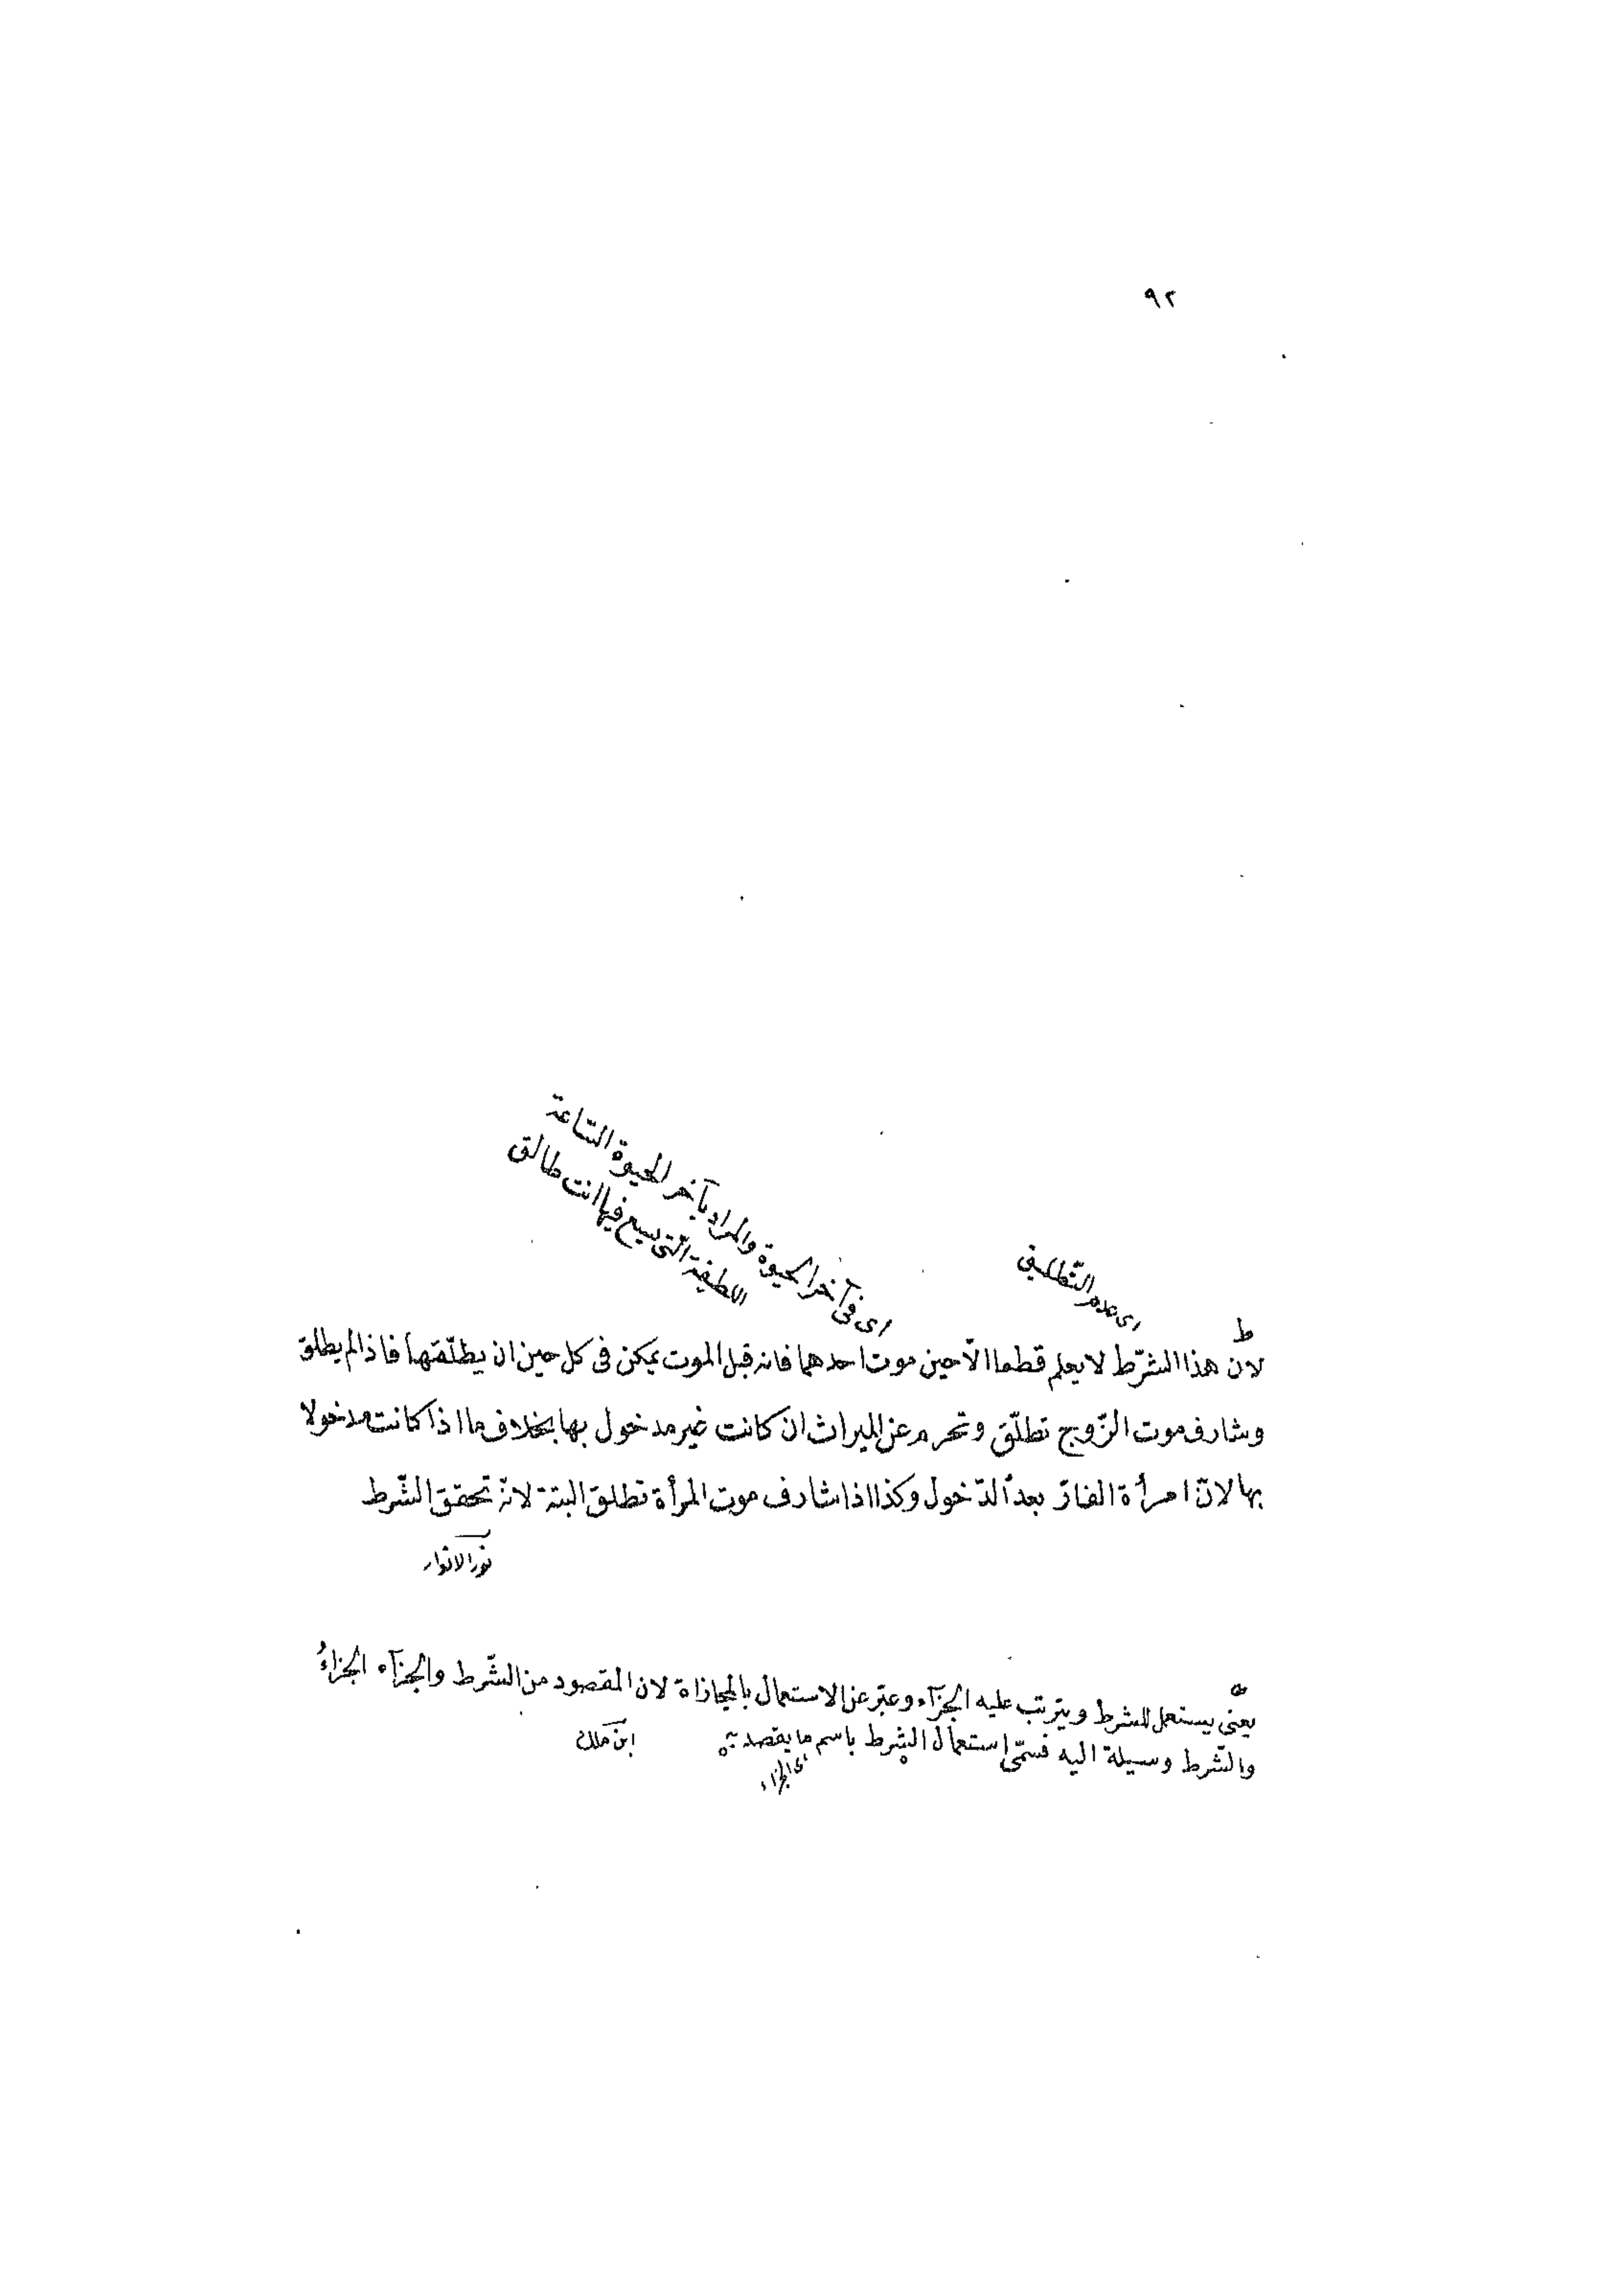 ٩٢
اى فى آخر الحيوة والمراد بآخر الحيوة الساعة
اللطيفة التى يسع فيها انت طالق
اى عدم التّطليق
ط
لان هذا الشرّط لا يعلم قطعا الاّ حين موت احدهما فانه قبل الموت يمكن فى كل حين ان يطلّقها فاذا لم يطلق
وشارف موت الزّوج تطلّق وتحرم عن الميراث ان كانت غير مدخول بها بخلاف ما اذا كانت مدخولا
بها لانّ امرأة الفارّ بعد الدّخول وكذا اذا شارف موت المرأة تطلق البتة لانّه تحقق الشّرط
نور الانوار
يعنى يستعمل للشرط ويترتب عليه الجزآء وعبّر عن الاستعمال بالمجازاة لان المقصود من الشّرط والجزآء الجزاءُ
والشّرط وسيلة اليه فسمّى استعمال الشرط باسم ما يقصد به
ابن ملك
اى الجزاء